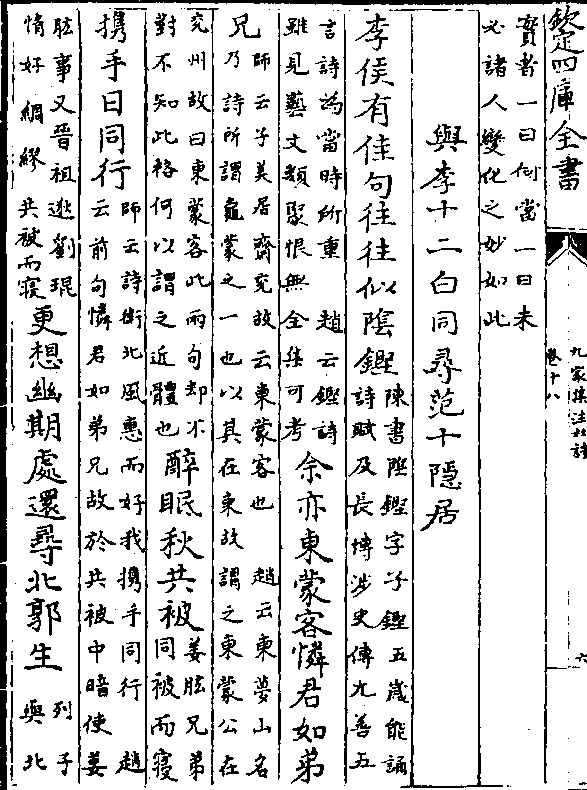 欽定四庫全書
九家集注杜詩
卷十八
六
實者一曰何當一曰未
必諸人變化之妙如此
與李十二白同尋范十隱居
李侯有佳句往往似陰鏗
陳書陰鏗字子鏗五歲能誦
詩賦及長博涉史傳尤善五
言詩為當時所重 趙云鏗詩
雖見藝文類聚恨無全集可考
余亦東蒙客憐君如弟
兄
師云子美居齊兗故云東蒙客也 趙云東夢山名
乃詩所謂龜蒙之一也以其在東故謂之東蒙公在
兗州故曰東蒙客此兩句却不
對不知此格何以謂之近體也
醉眠秋共被
姜肱兄弟
同被而寢
携手日同行
師云詩衛北風惠而好我携手同行 趙
云前句憐君如弟兄故於共被中暗使姜
肱事又晉祖逖劉琨
情好綢繆共被而寢
更想幽期處還尋北郭生
列子
與北